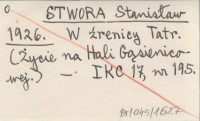 STWORA Stanisław
1926. W źrenicy Tatr.
(Życie na Hali Gąsienico-
wej.) — IKC 17, nr 195.